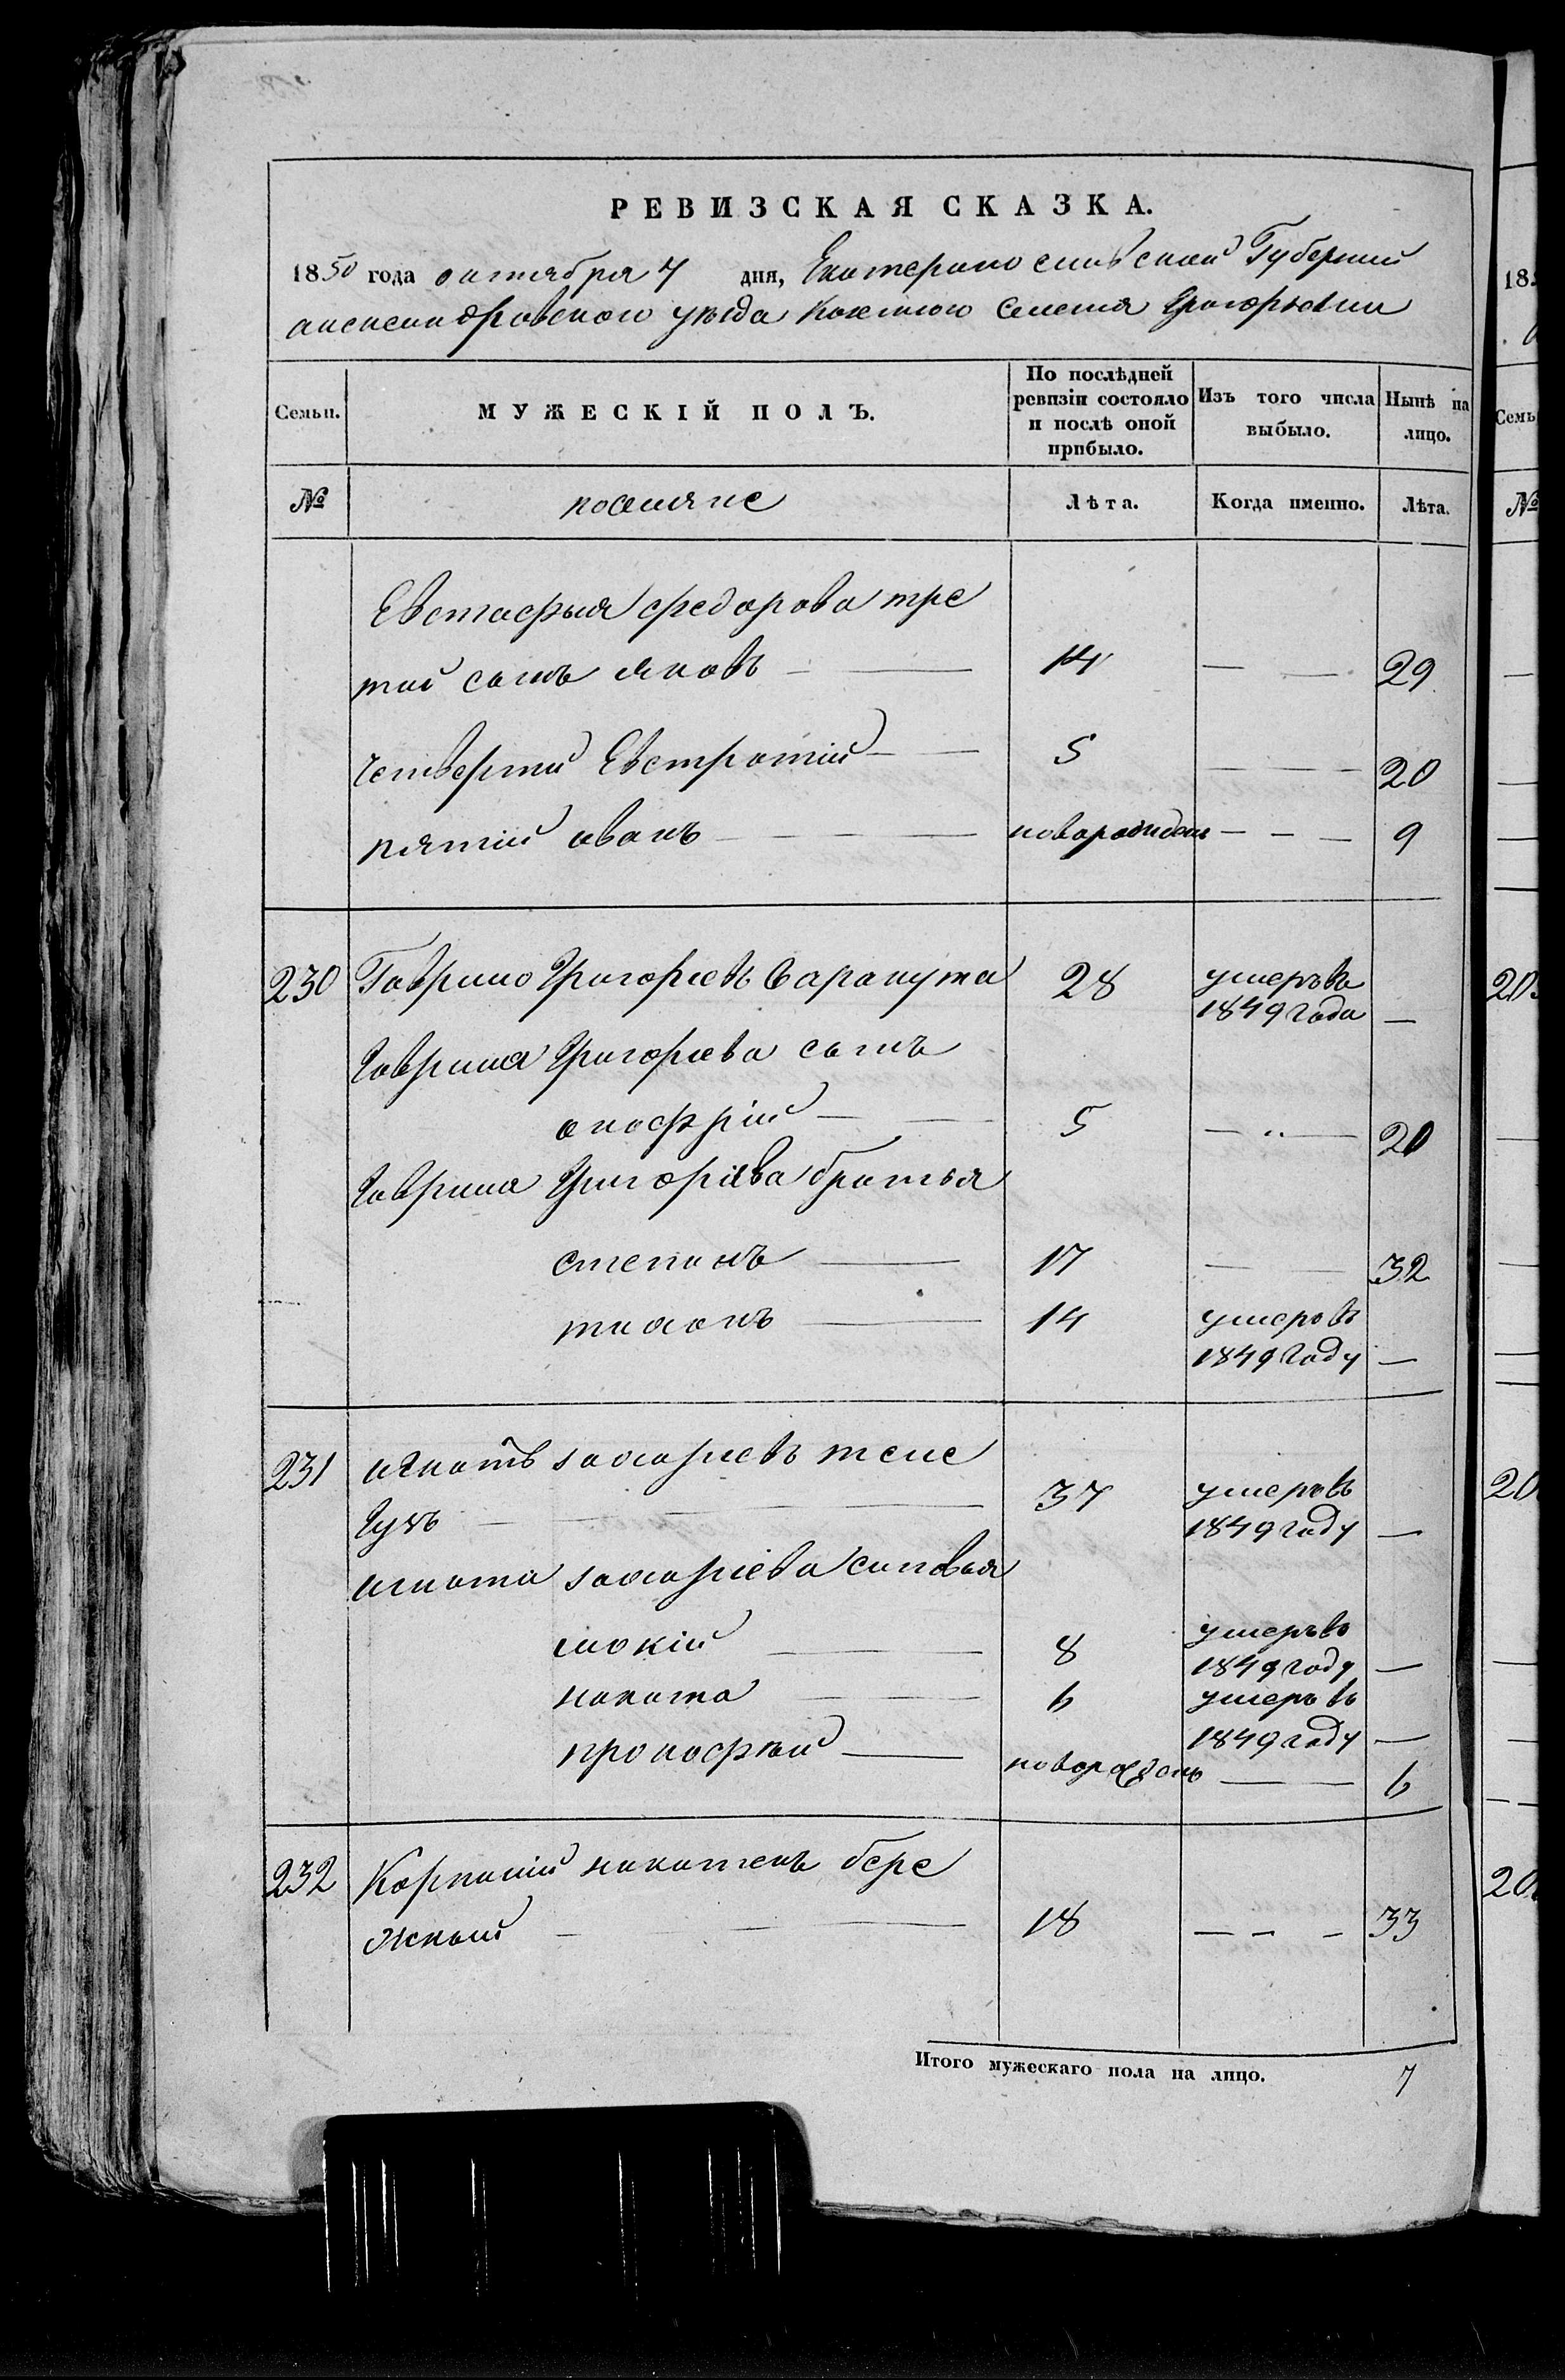 РЕВИЗСКАЯ СКАЗКА.
1850 года октября 7 дня, Екатеринославской Губернии
александровского уезда казенного Селения Григорьевки
Семьи. МУЖЕСКІЙ ПОЛЪ. По послѣдней ревизіи состояло и послѣ оной прибыло. Изъ того числа выбыло. Нынѣ на лицо.
№ поселяне Лѣта. Когда именно. Лѣта.
Евстафыя федорова тре
тий сынъ яковъ — 14 — 29
четвертий Евстратий — 5 — 20
пятий иванъ — новорожденъ — 9
230 Гаврило Григориевъ Саракута 28 умеръ въ
1849 года —
Гаврила Григориева сынъ
онофрій — 5 — 20
Гаврила Григориева братья
степанъ — 17 — 32
тихонъ — 14 умеръ въ
1849 Году —
231 игнатъ захариевъ теле
гунъ — 37 умеръ въ
1849 году —
игната захаріева синовья
мокій — 8 умеръ въ
1849 году —
никита — 6 умеръ въ
1849 году —
прокофий — новорожденъ — 6
232 Корнилий никитенъ бере
жный — 18 — 33
Итого мужескаго пола на лицо. 7